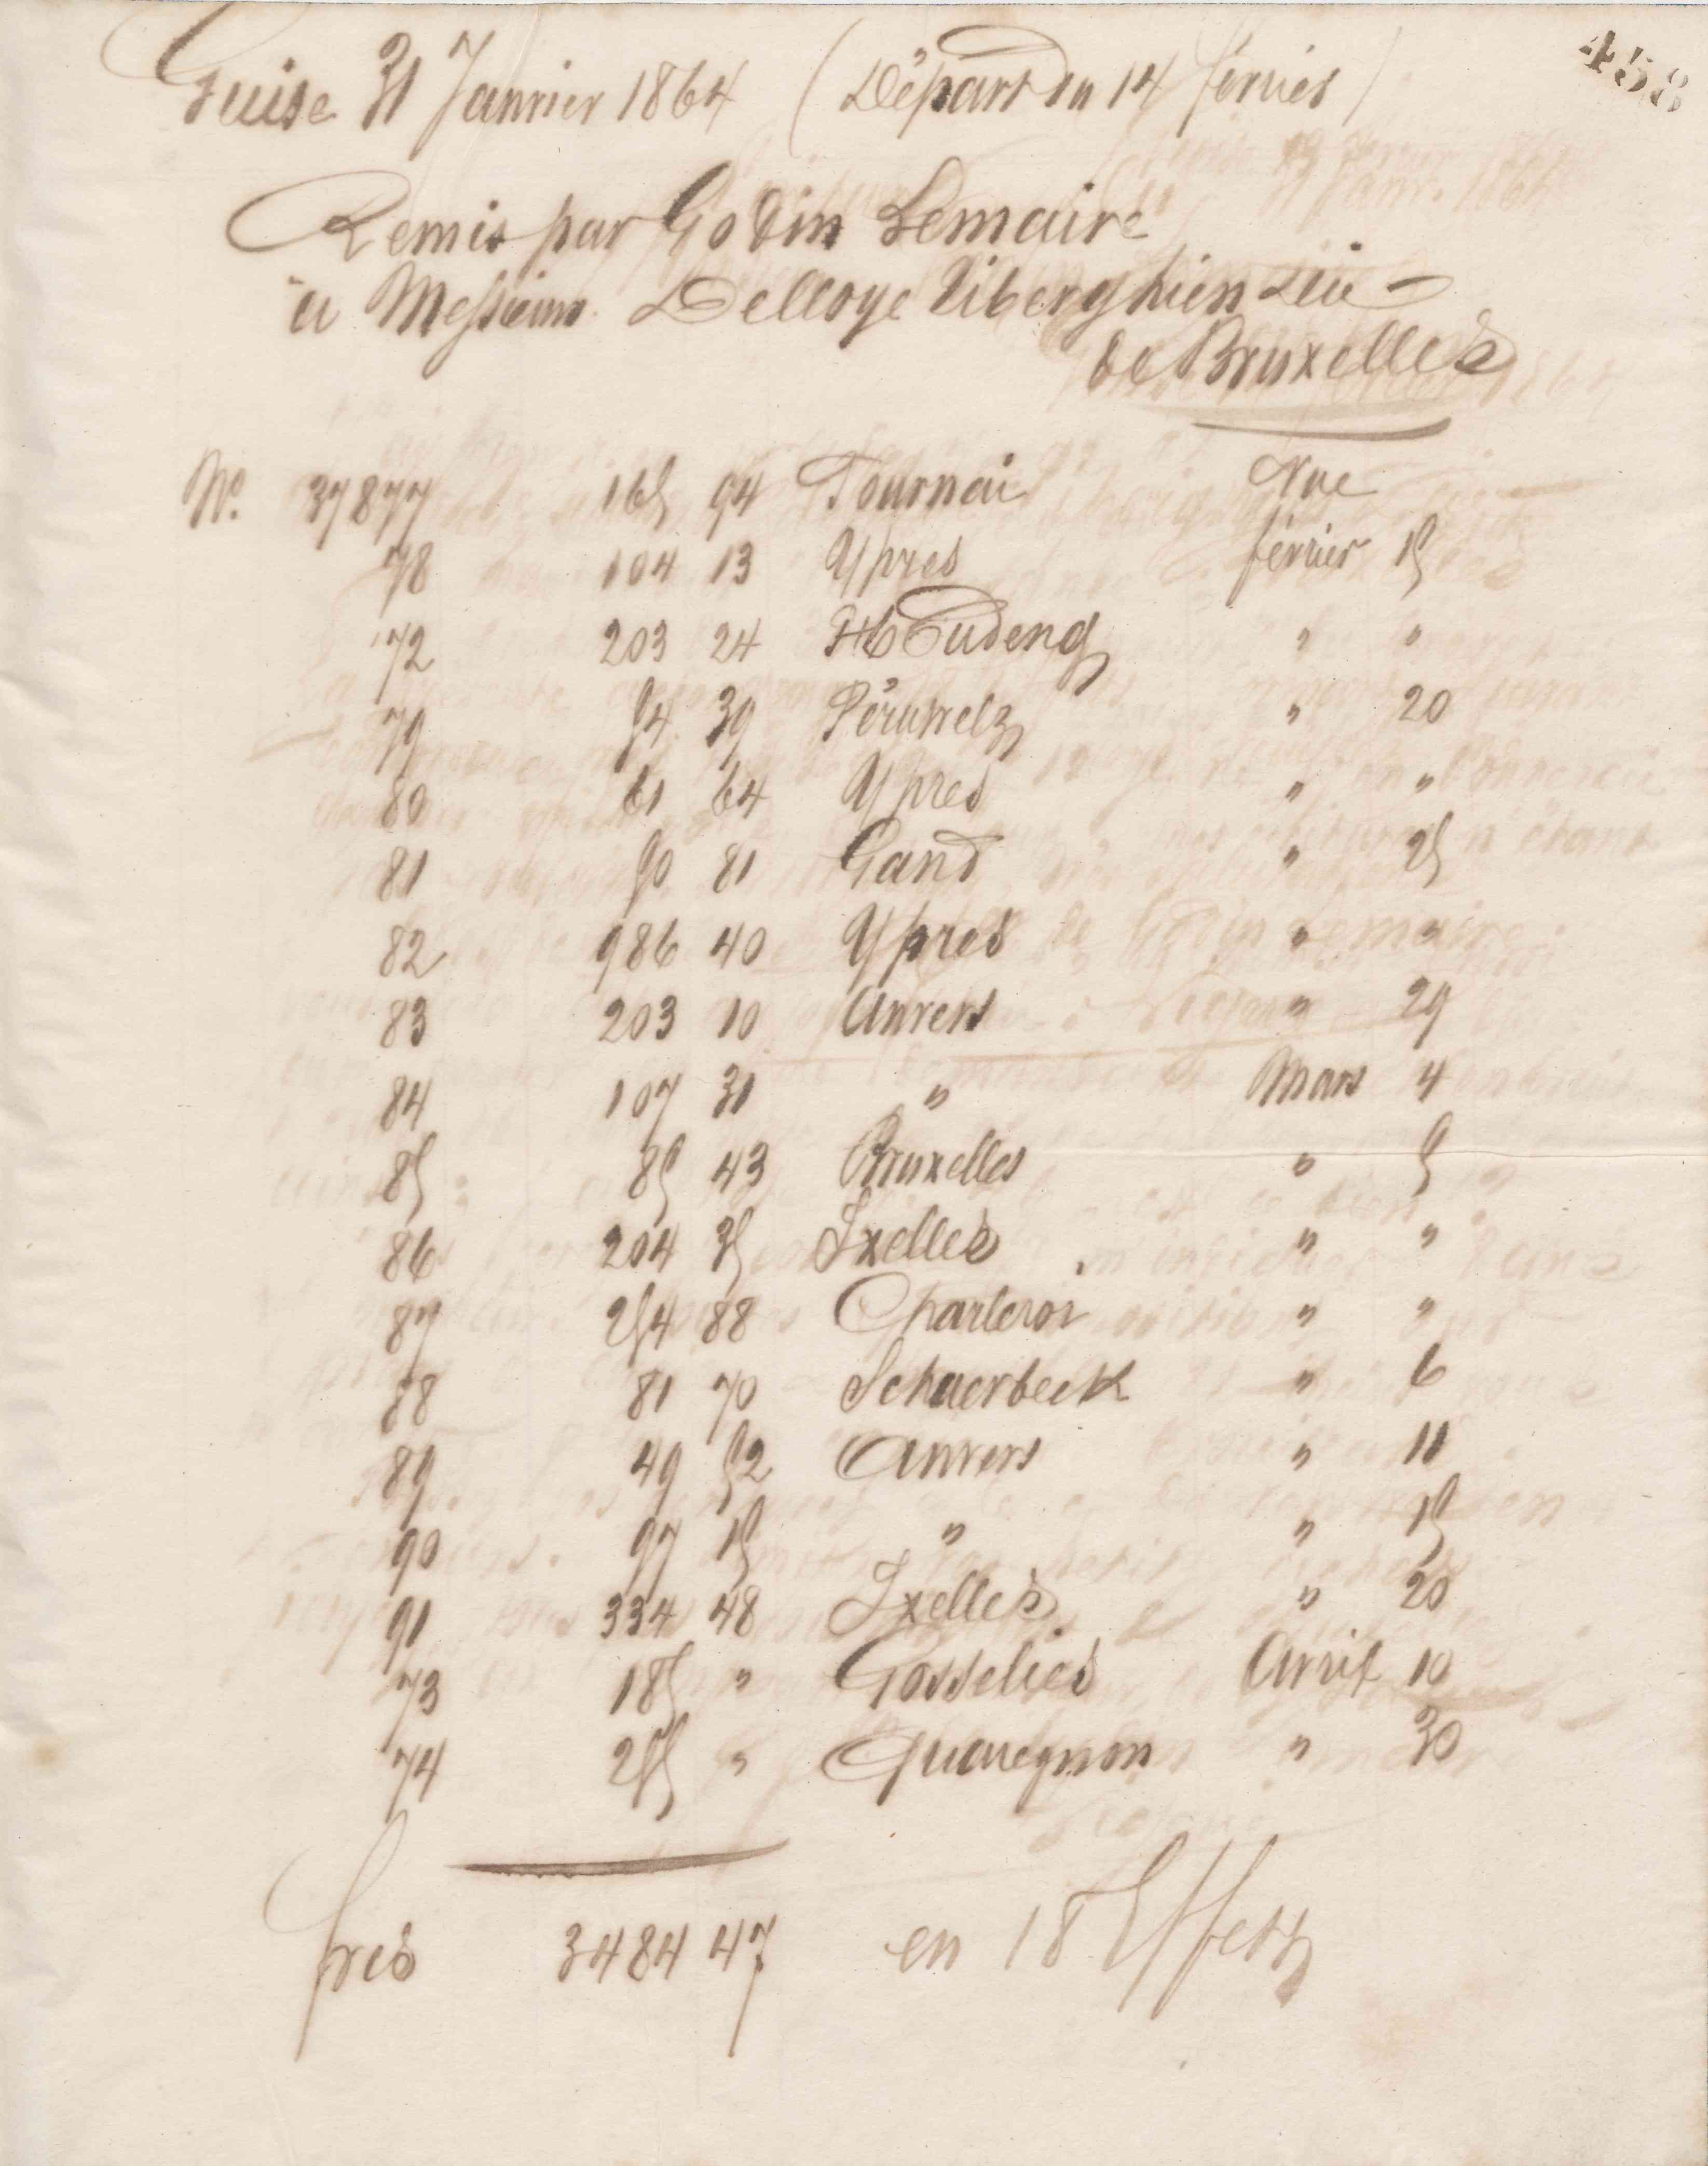 458
Guise 31 Janvier 1864 (Départ du 14 février)
Remis par Godin Lemaire
à Messieurs Delloye Tiberghien &Cie
de Bruxelles
No. 37877 165 94 Tournai Vue
78 104 13 Ypres février 15
72 203 24 Hte Eudeng " "
79 54 39 Péruwelz " 20
80 61 64 Ypres " "
81 50 81 Gand " 25
82 986 40 Ypres " "
83 203 10 Anvers " 29
84 107 31 " Mars 4
85 85 43 Bruxelles " 5
86 204 35 Ixelles " "
87 254 88 Charleroi " "
88 81 70 Schaerbeek " 6
89 49 52 Anvers " 11
90 97 15 " " 15
91 334 48 Ixelles " 20
73 185 " Gosselies Avril 10
74 255 " Quaregnon " 30
frcs 3484 47 en 18 Effets